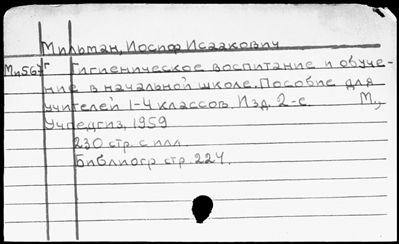 Мильман, Иосиф Исаакович
Ми567 Гигиеническое воспитание и обуче-
ние в начальной школе. Пособие для
учителей 1-4 классов. Изд. 2-е. М.,
Учпедгиз, 1959
230 стр. с илл.
Библиогр стр. 224.